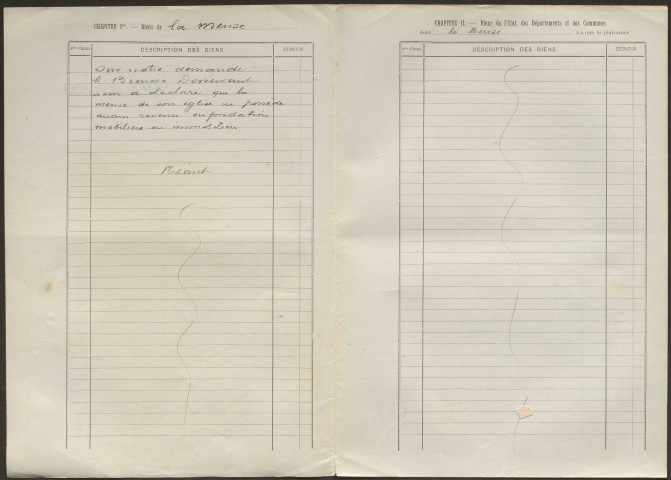 CHAPITRE Ier. — Biens de la Mense
Nos d'ordre DESCRIPTION DES BIENS ESTIMATION
Sur notre demande
M. Desservant
nous a déclaré que la
mense de son église ne possède
aucun revenu en fondation
mobiliers ou immobiliers
Néant
CHAPITRE II. — Biens de l'État, des Départements et des Communes
dont la Mense n'a que la jouissance
Nos d'ordre DESCRIPTION DES BIENS ESTIMATION